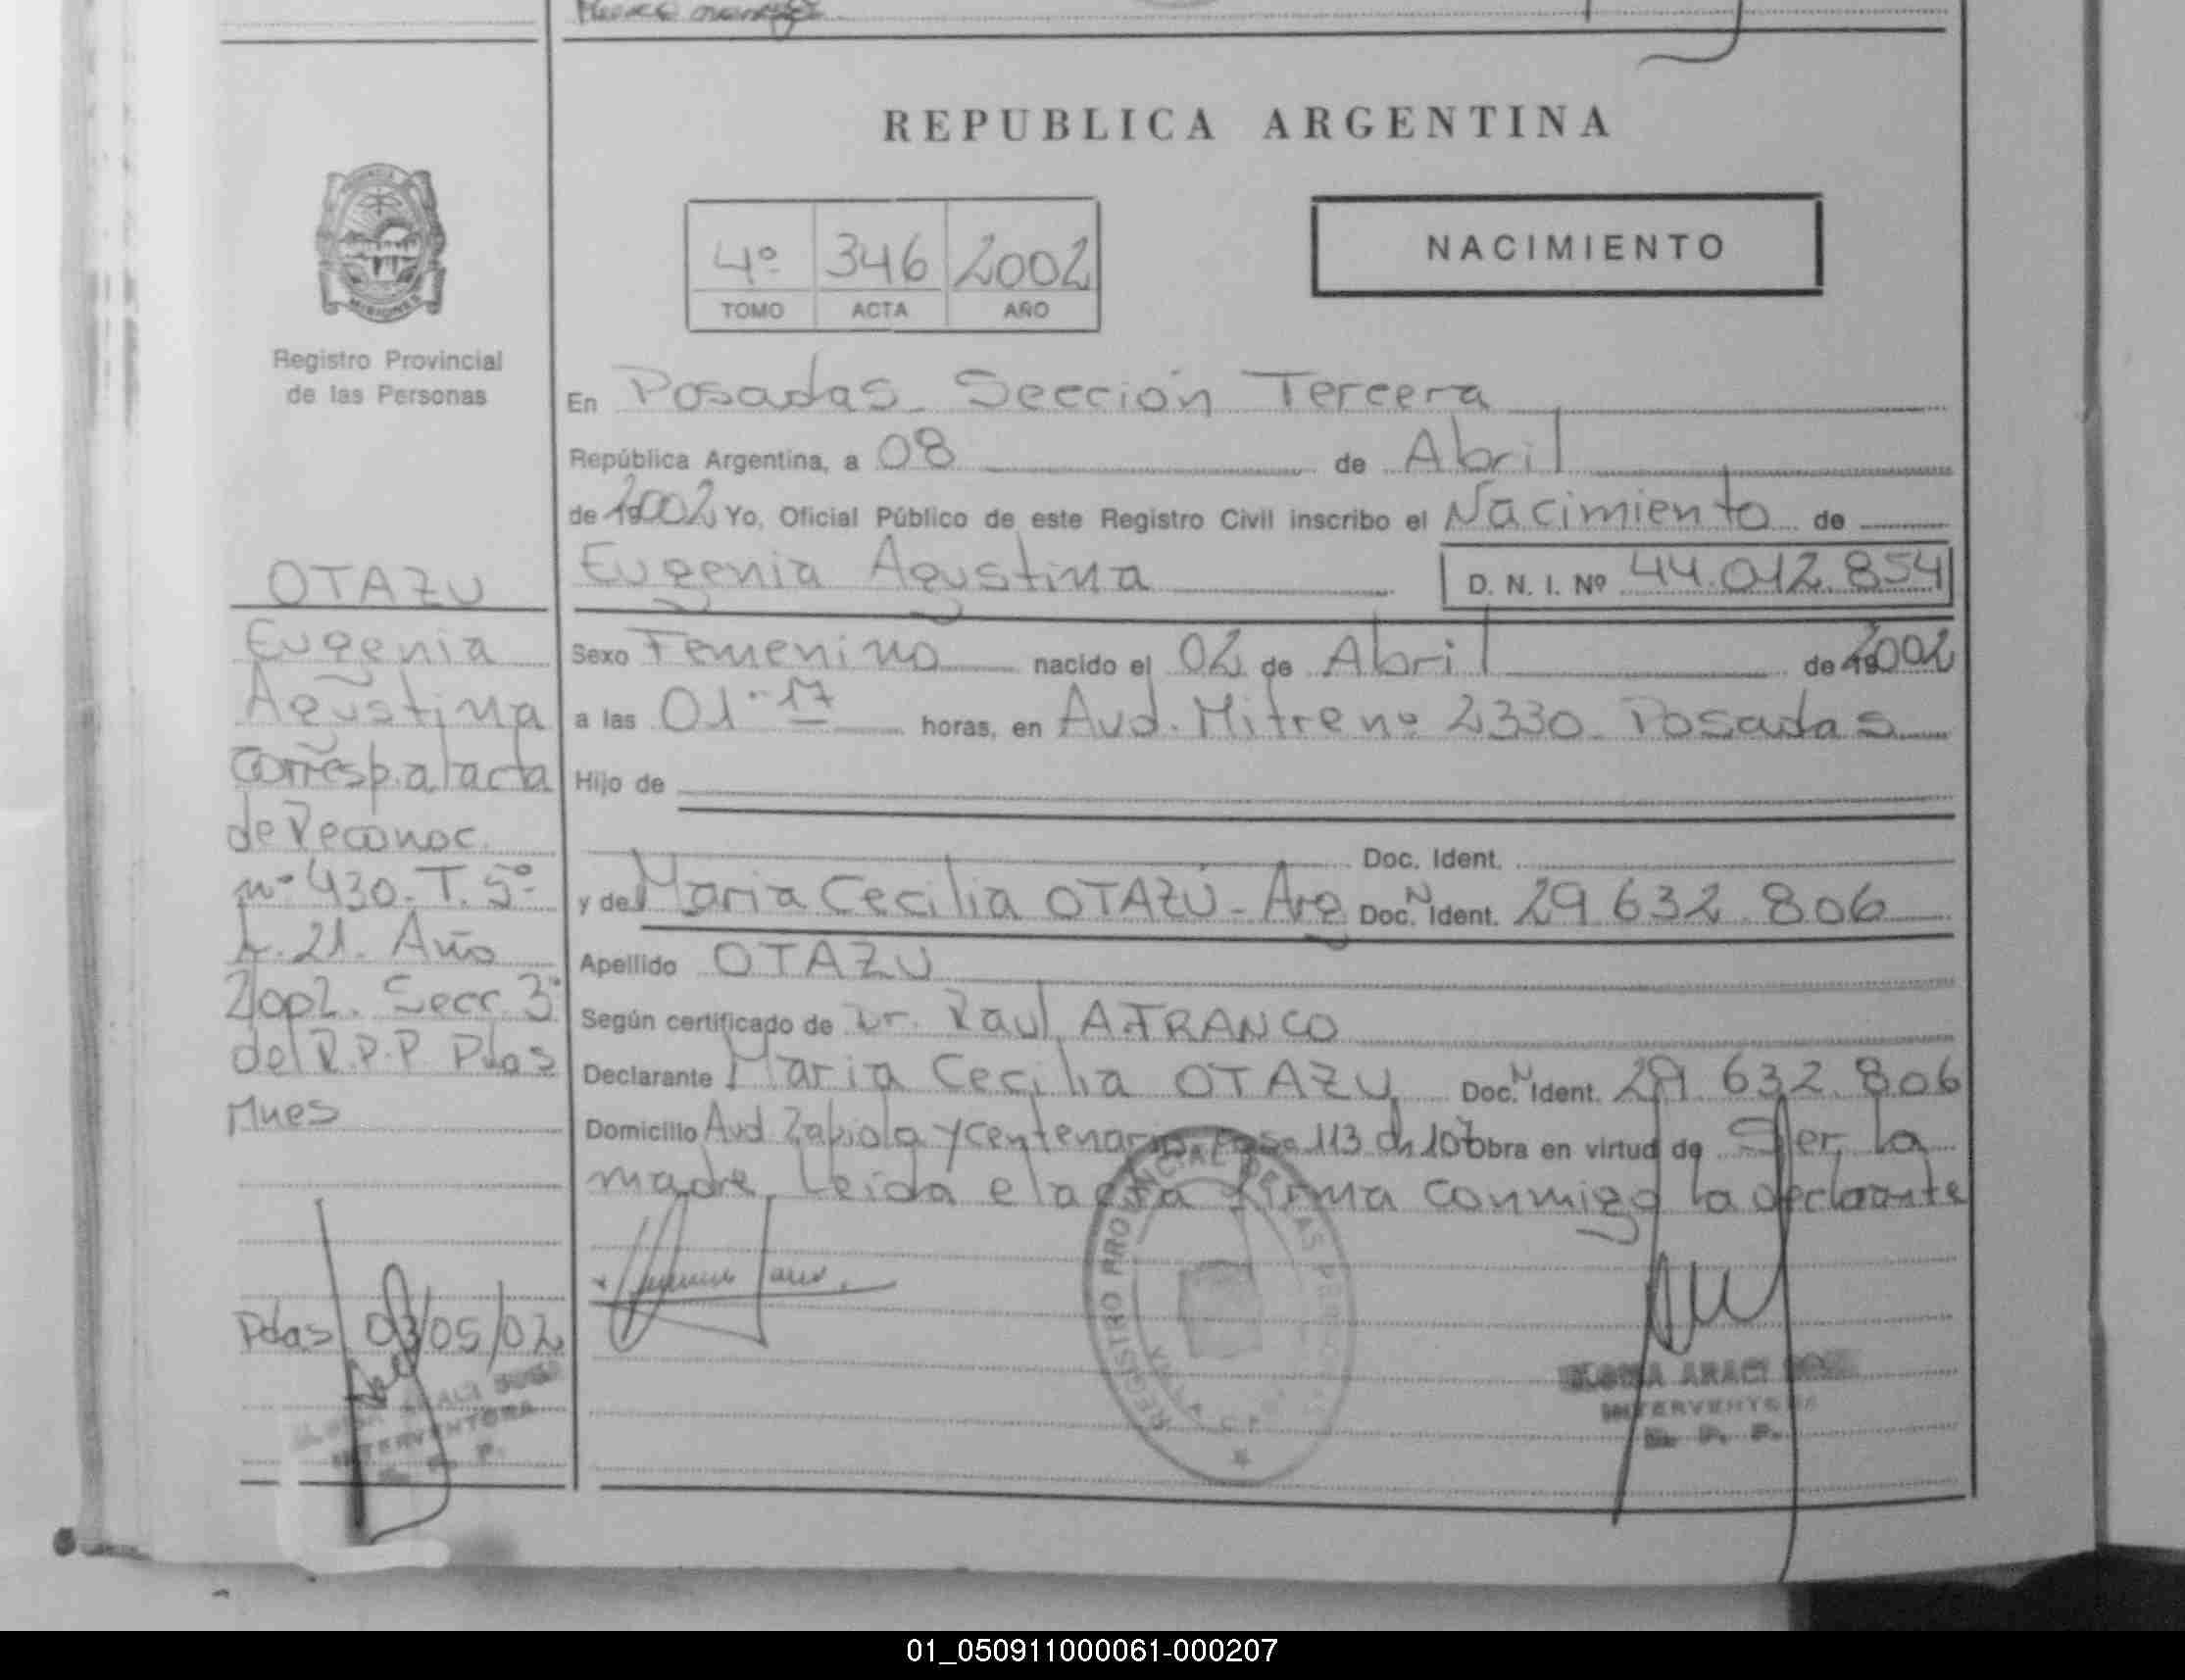 REPUBLICA ARGENTINA
NACIMIENTO
4º 346 2002
TOMO ACTA AÑO
Registro Provincial
de las Personas
En Posadas Sección Tercera
República Argentina, a 08 de Abril
de 2002 Yo, Oficial Público de este Registro Civil inscribo el Nacimiento de
Eugenia Agustina D. N. I. Nº 44.012.854
Sexo Femenino nacido el 02 de Abril de 2002
a las 01·17 horas, en Avd. Mitre nº 2330 Posadas
Hijo de
Doc. Ident.
y de Maria Cecilia OTAZÚ - Arg Doc. N Ident. 29 632 806
Apellido OTAZU
Según certificado de Dr. Raul A. FRANCO
Declarante Maria Cecilia OTAZU Doc. N Ident. 29 632 806
Domicilio Avd Zapiola y centenario 113 107 obra en virtud de Ser la
madre, Leida el acta firma conmigo la declarante
OTAZU
Eugenia
Agustina
Corresp. al acta
de Reconoc.
nº 430. T. 5º
L. 21. Año
2002. Secc. 3ª
del R.P.P Pdas
Mnes
Pdas 03/05/02
ARACI
INTERVENTORA
R. P. P.
REGISTRO PROVINCIAL DE LAS PERSONAS
ARACI
INTERVENTORA
R. P. P.
01_050911000061-000207